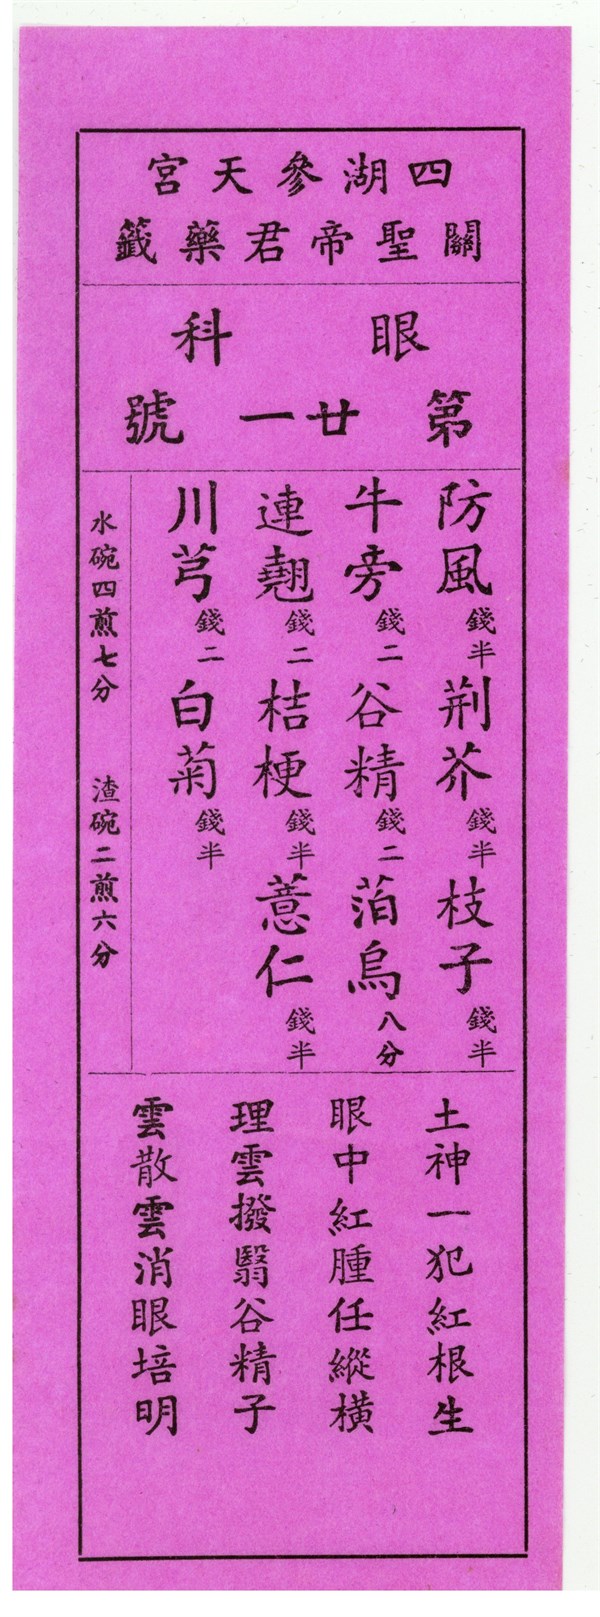 四湖參天宮
關聖帝君藥籤
眼科
第廿一號
防風錢半荆芥錢半枝子錢半
牛旁錢二谷精錢二萡烏八分
連翹錢二桔梗錢半薏仁錢半
川芎錢二白菊錢半
水碗四煎七分 渣碗二煎六分
土神一犯紅根生
眼中紅腫任縱橫
理雲撥翳谷精子
雲散雲消眼培明